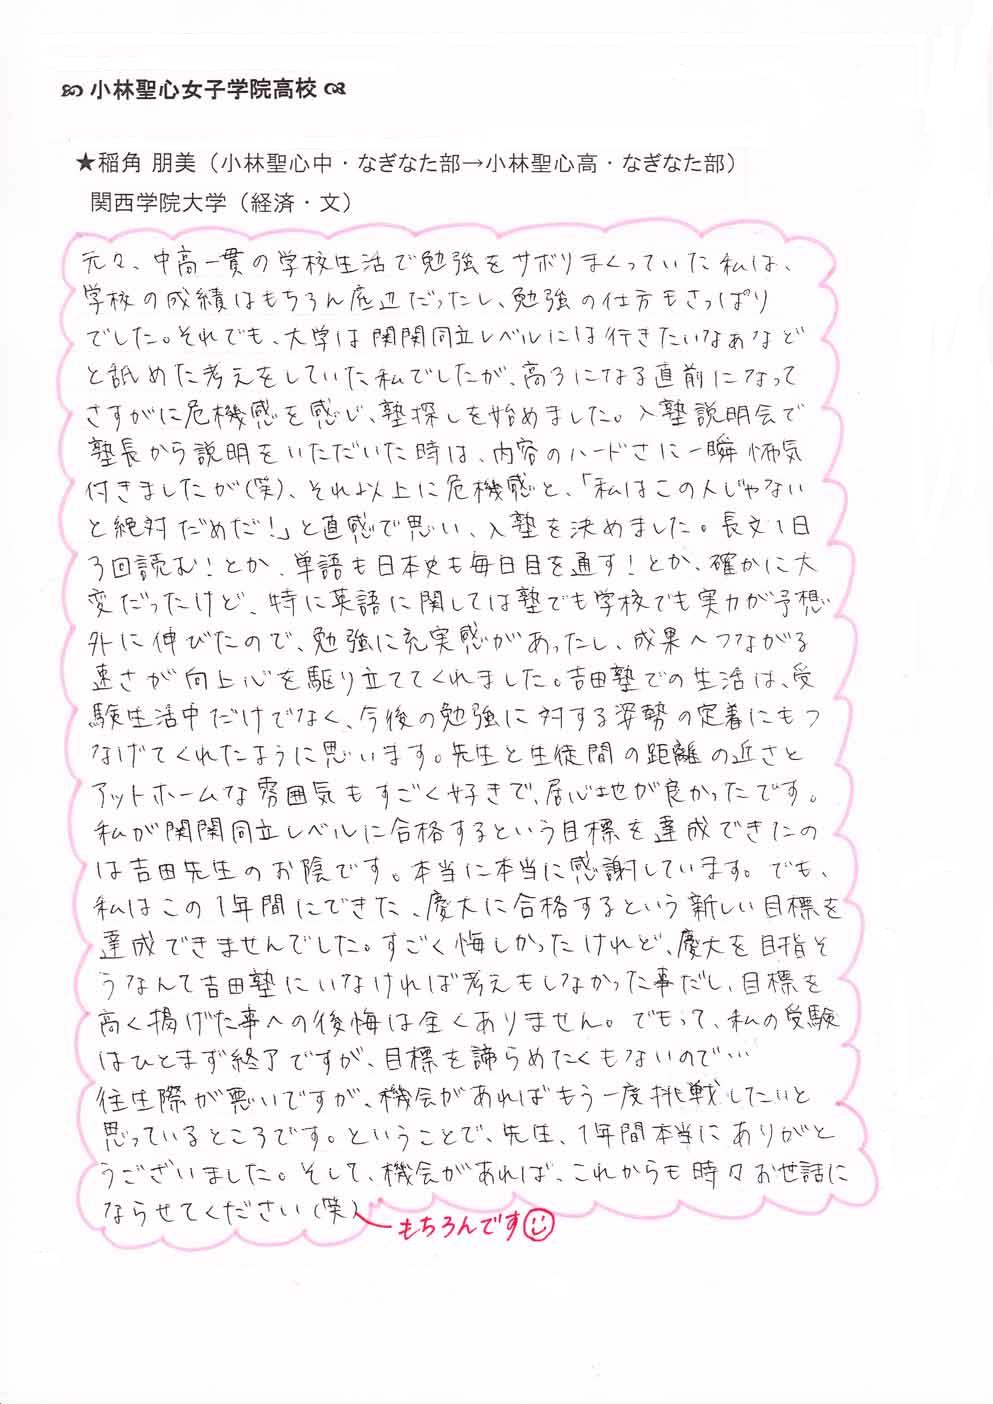 小林聖心女子学院高校
★稲角 朋美（小林聖心中・なぎなた部→小林聖心高・なぎなた部）
関西学院大学（経済・文）
元々、中高一貫の学校生活で勉強をサボりまくっていた私は、
学校の成績はもちろん底辺だったし、勉強の仕方もさっぱり
でした。それでも、大学は関関同立レベルには行きたいなぁなど
と舐めた考えをしていた私でしたが、高3になる直前になって
さすがに危機感を感じ、塾探しを始めました。入塾説明会で
塾長から説明をいただいた時は、内容のハードさに一瞬怖気
付きましたが(笑)、それ以上に危機感と、「私はこの人じゃない
と絶対だめだ!」と直感で思い、入塾を決めました。長文1日
3回読む!とか、単語も日本史も毎日目を通す!とか、確かに大
変だったけど、特に英語に関しては塾でも学校でも実力が予想
外に伸びたので、勉強に充実感があったし、成果へつながる
速さが向上心を駆り立ててくれました。吉田塾での生活は、受
験生活中だけでなく、今後の勉強に対する姿勢の定着にもつ
なげてくれたように思います。先生と生徒間の距離の近さと
アットホームな雰囲気もすごく好きで、居心地が良かったです。
私が関関同立レベルに合格するという目標を達成できたの
は吉田先生のお陰です。本当に本当に感謝しています。でも、
私はこの1年間にできた、慶大に合格するという新しい目標を
達成できませんでした。すごく悔しかったけれど、慶大を目指そ
うなんて吉田塾にいなければ考えもしなかった事だし、目標を
高く揚げた事への後悔は全くありません。でもって、私の受験
はひとまず終了ですが、目標を諦らめたくもないので…
往生際が悪いですが、機会があればもう一度挑戦したいと
思っているところです。ということで、先生、1年間本当にありがと
うございました。そして、機会があれば、これからも時々お世話に
ならせてください(笑)
もちろんです